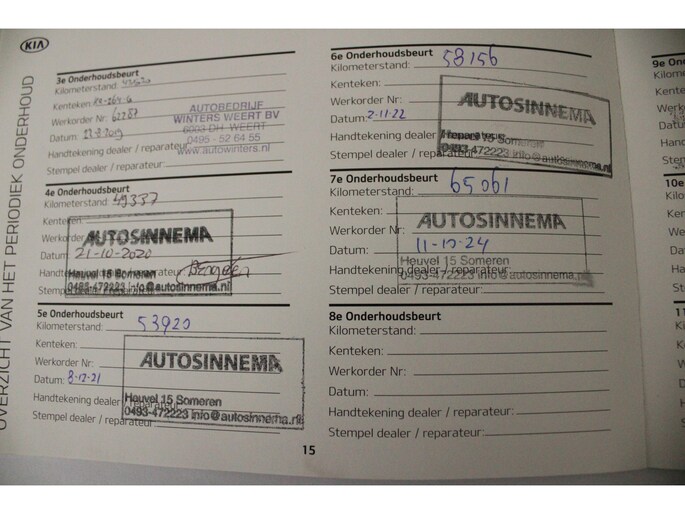 KIA
OVERZICHT VAN HET PERIODIEK ONDERHOUD
3e Onderhoudsbeurt
Kilometerstand:
Kenteken:
Werkorder Nr:
Datum:
Handtekening dealer / reparateur:
Stempel dealer / reparateur:
AUTOBEDRIJF
WINTERS WEERT BV
6003 DH WEERT
0495 - 52 64 55
www.autowinters.nl
4e Onderhoudsbeurt
Kilometerstand: 49337
Kenteken:
Werkorder
AUTOSINNEMA
Datum: 21-10-2020
Heuvel 15 Someren
0493-472223 info@autosinnema.nl
5e Onderhoudsbeurt
Kilometerstand: 53920
Kenteken:
Werkorder Nr:
AUTOSINNEMA
Datum: 8-12-21
Handtekening dealer / reparateur:
Heuvel 15 Someren
0493-472223 info@autosinnema.nl
Stempel dealer / reparateur:
6e Onderhoudsbeurt
Kilometerstand: 58156
Kenteken:
Werkorder Nr:
AUTOSINNEMA
Datum: 2-11-22
Handtekening dealer / reparateur:
Heuvel 15 Someren
0493-472223 info@autosinnema.nl
Stempel dealer / reparateur:
7e Onderhoudsbeurt
Kilometerstand: 65061
Kenteken:
Werkorder Nr:
AUTOSINNEMA
Datum: 11-12-24
Heuvel 15 Someren
Handtekening dealer / reparateur:
0493-472223 info@autosinnema.nl
Stempel dealer / reparateur:
8e Onderhoudsbeurt
Kilometerstand:
Kenteken:
Werkorder Nr:
Datum:
Handtekening dealer / reparateur:
Stempel dealer / reparateur:
15
9e On
Kilom
Kente
10e
Kilo
Ken
We
Dat
Ha
Ste